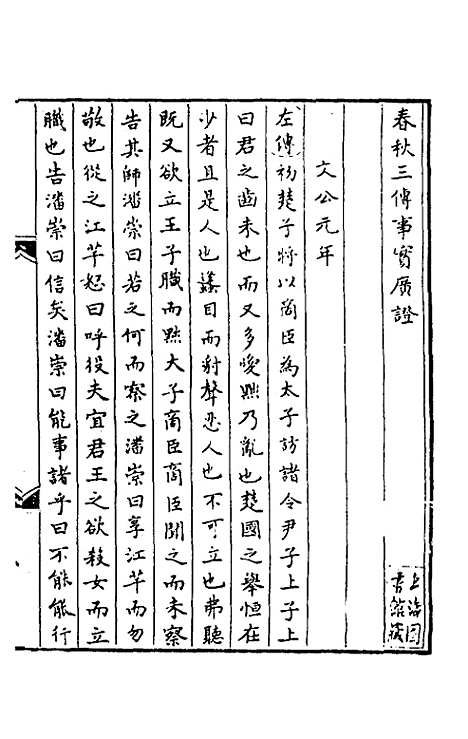 春秋三傳事實廣證
上海圖
書館藏
文公元年
左傳初楚子將以商臣為太子訪諸令尹子上子上
曰君之齒未也而又多愛黜乃亂也楚國之舉恒在
少者且是人也蠭目而豺聲忍人也不可立也弗聽
既又欲立王子職而黜大子商臣商臣聞之而未察
告其師潘崇曰若之何而察之潘崇曰享江芊而勿
敬也從之江芊怒曰呼役夫宜君王之欲殺女而立
職也告潘崇曰信矣潘崇曰能事諸乎曰不能能行